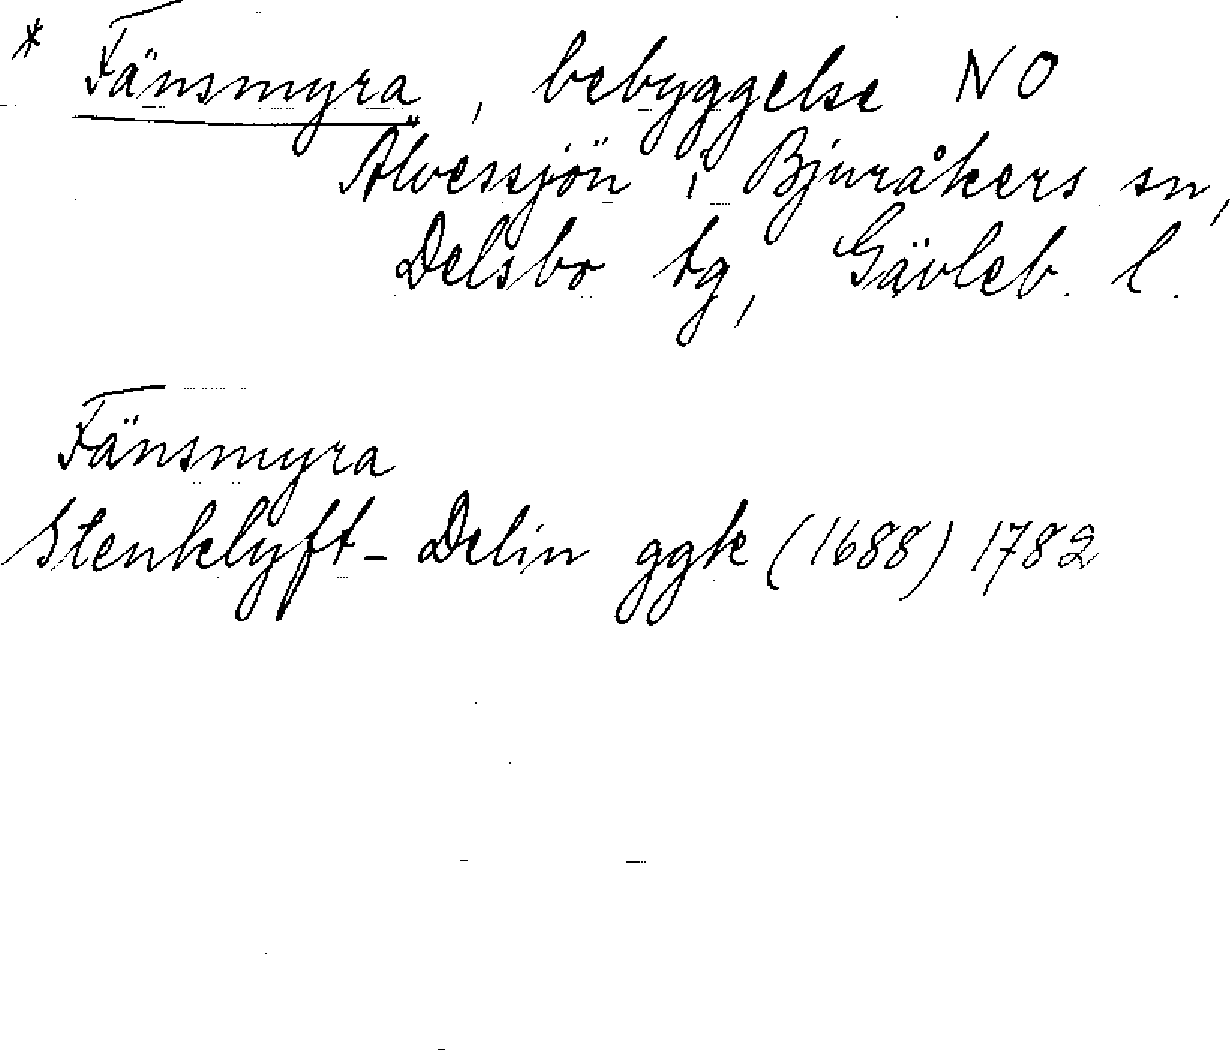 * Fänsmyra, bebyggelse NO
Älvessjön i Bjuråkers sn,
Delsbo tg, Gävleb. l.
Fänsmyra
Stenklyft-Delin ggk (1688) 1782